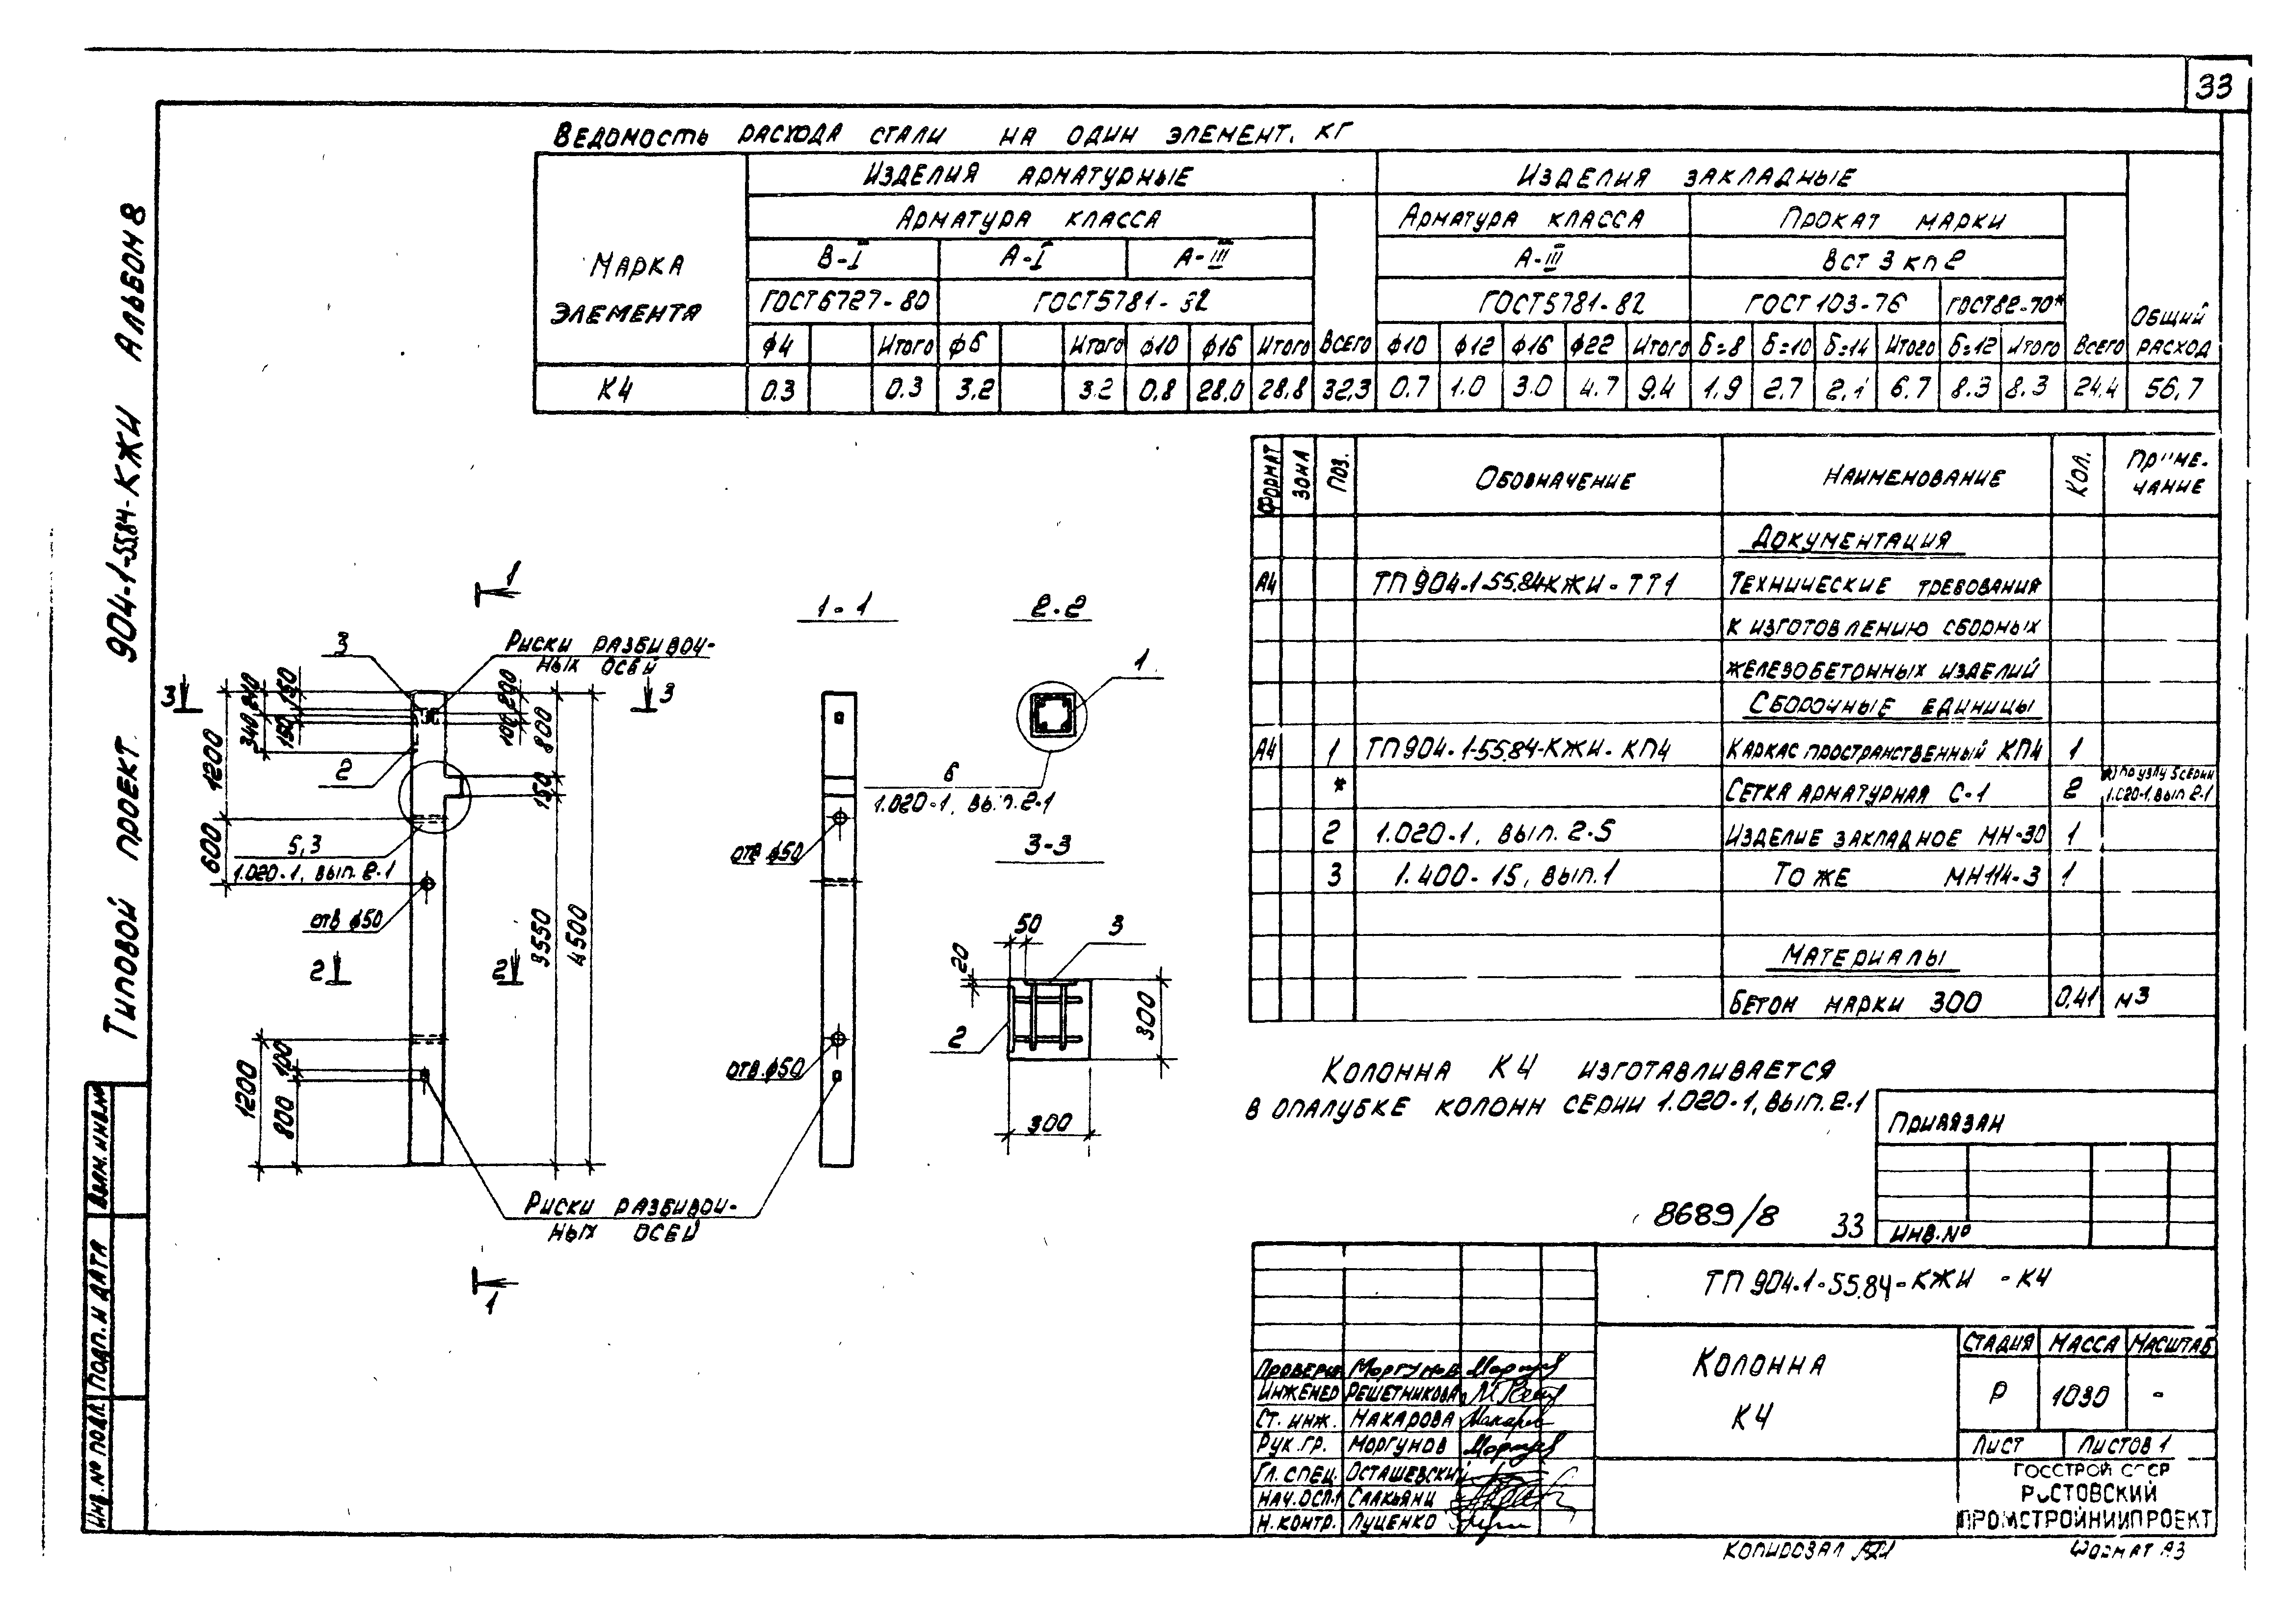 33
Ведомость расхода стали на один элемент, кг
Марка элемента
Изделия арматурные
Изделия закладные
Общий расход
Арматура класса
Всего
Арматура класса
Прокат марки
Всего
В-I
А-I
А-III
А-III
Вст 3 кп 2
ГОСТ 6727-80
ГОСТ 5781-82
ГОСТ 5781-82
ГОСТ 103-76
ГОСТ 82-70*
ф4 Итого ф6 Итого ф10 ф16 Итого Всего ф10 ф12 ф16 ф22 Итого б=8 б=10 б=14 Итого б=12 Итого Всего
К4 0.3 0.3 3.2 3.2 0.8 28.0 28.8 32.3 0.7 1.0 3.0 4.7 9.4 1.9 2.7 2.1 6.7 8.3 8.3 24.4 56.7
Формат Зона Поз. Обозначение Наименование Кол. Примечание
Документация
А4 ТП 904-1-55.84-КЖИ-ТТ1 Технические требования
к изготовлению сборных
железобетонных изделий
Сборочные единицы
А4 1 ТП 904-1-55.84-КЖИ-КП4 Каркас пространственный КП4 1
* Сетка арматурная С-1 2 *) по узлу 5 серии
1.020-1, вып 2-1
2 1.020-1, вып. 2-5 Изделие закладное МН-30 1
3 1.400-15, вып.1 То же МН114-3 1
Материалы
Бетон марки 300 0.41 м3
1
1-1
2-2
3
Риски разбивоч-
ных осей
1
3
3
240
150
340
150
200
100
800
2
1200
150
6
1.020-1, вып. 2-1
600
5,3
1.020-1, вып. 2-1
отв ф50
отв ф50
3-3
3550
4500
50
3
20
2
2
300
2
300
отв. ф50
1200
100
800
Риски разбивоч-
ных осей
1
Колонна К4 изготавливается
в опалубке колонн серии 1.020-1, вып. 2-1
Привязан
Инв. №
8689/8 33
ТП 904-1-55.84-КЖИ -К4
Колонна
К4
Стадия Масса Масштаб
Р 1030 -
Лист Листов 1
Госстрой СССР
Ростовский
Промстройниипроект
Моргунов
Инженер Решетникова
Ст. инж. Макарова
Рук. гр. Моргунов
Гл. спец. Осташевский
Нач. ОСП-1 Саакьянц
Н. контр. Луценко
Копировал
Формат А3
Типовой проект 904-1-55.84-КЖИ Альбом 8
Взам. инв. №
Подп. и дата
Инв. № подл.